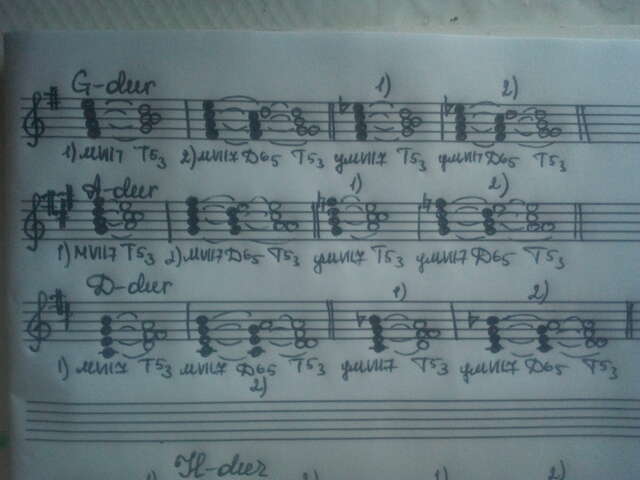 G-dur 1) 2)
1) мVII7 T53 2) мVII7 Д65 T53 умVII7 T53 умVII7 Д65 T53
A-dur 1) 2)
1) мVII7 T53 2) мVII7 Д65 T53 умVII7 T53 умVII7 Д65 T53
D-dur 1) 2)
1) мVII7 T53 мVII7 Д65 T53 умVII7 T53 умVII7 Д65 T53
2)
H-dur